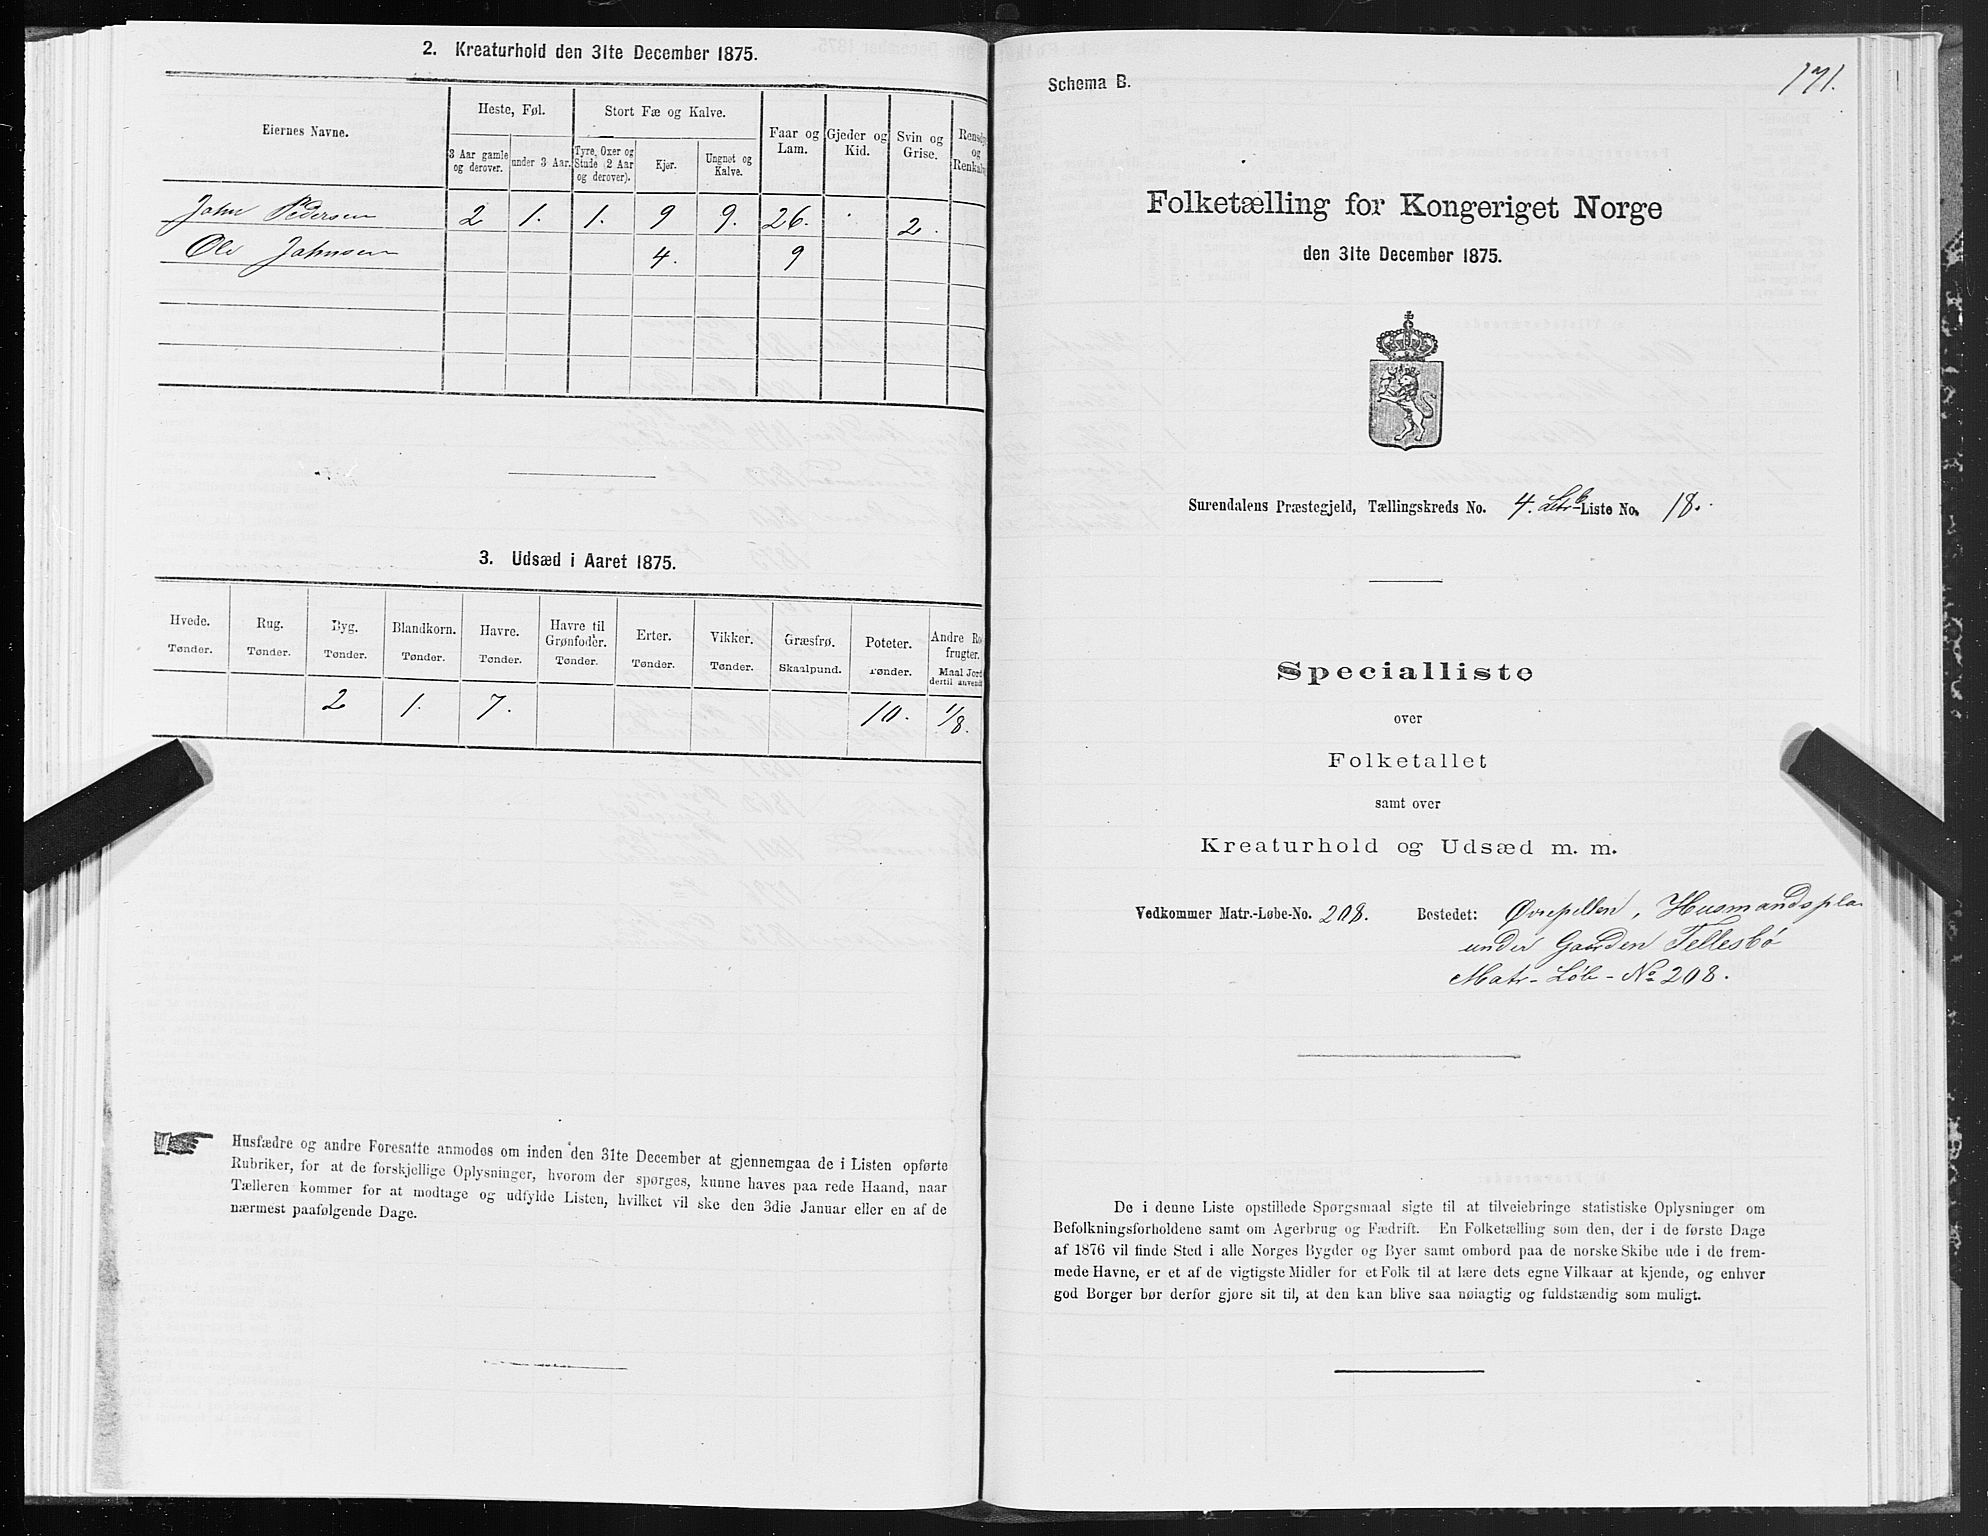 2. Kreaturhold den 31te December 1875.
Eiernes Navne.
Heste, Føl.
Stort Fæ og Kalve.
Faar og Lam.
Gjeder og Kid.
Svin og Grise.
Rensdyr og Renkalve
3 Aar gamle og derover.
under 3 Aar.
Tyre, Oxer og Stude (2 Aar og derover).
Kjør.
Ungnøt og Kalve.
John Pedersen 2 1. 1. 9 9. 26. 2.
Ole Johnsen 4. 9
3. Udsæd i Aaret 1875.
Hvede. Rug. Byg. Blandkorn. Havre. Havre til Grønfoder. Erter. Vikker. Græsfrø. Poteter. Andre Ro- frugter.
Tønder. Tønder. Tønder. Tønder. Tønder. Tønder. Tønder. Tønder. Skaalpund. Tønder. Maal Jord dertil anvendt
2 1. 7. 10. 1/8.
Husfædre og andre Foresatte anmodes om inden den 31te December at gjennemgaa de i Listen opførte
Rubriker, for at de forskjellige Oplysninger, hvorom der spørges, kunne haves paa rede Haand, naar
Tælleren kommer for at modtage og udfylde Listen, hvilket vil ske den 3die Januar eller en af de
nærmest paafølgende Dage.
Schema B.
171.
Folketælling for Kongeriget Norge
den 31te December 1875.
Surendalens Præstegjeld, Tællingskreds No. 4. Litr. b Liste No. 18.
Specialliste
over
Folketallet
samt over
Kreaturhold og Udsæd m. m.
Vedkommer Matr.-Løbe-No. 208. Bostedet: Øvrepellen, Husmandspla
under Gaarden Tellesbø
Matr-Løb-No 208.
De i denne Liste opstillede Spørgsmaal sigte til at tilveiebringe statistiske Oplysninger om
Befolkningsforholdene samt om Agerbrug og Fædrift. En Folketælling som den, der i de første Dage
af 1876 vil finde Sted i alle Norges Bygder og Byer samt ombord paa de norske Skibe ude i de frem-
mede Havne, er et af de vigtigste Midler for et Folk til at lære dets egne Vilkaar at kjende, og enhver
god Borger bør derfor gjøre sit til, at den kan blive saa nøiagtig og fuldstændig som muligt.